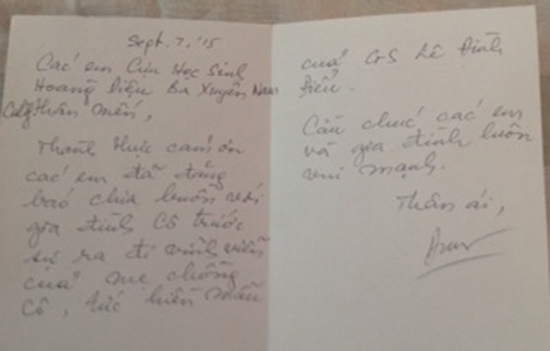 Sept. 7, '15
Các em Cựu Học Sinh
Hoàng Diệu Ba Xuyên Nam
Cali thân mến,
Thành thực cám ơn
các em đã đăng
báo chia buồn với
gia đình Cô trước
sự ra đi vĩnh viễn
của mẹ chồng
Cô, tức hiền mẫu
của GS Lê Đình
Điểu.
Cầu chúc các em
và gia đình luôn
vui mạnh.
Thân ái,